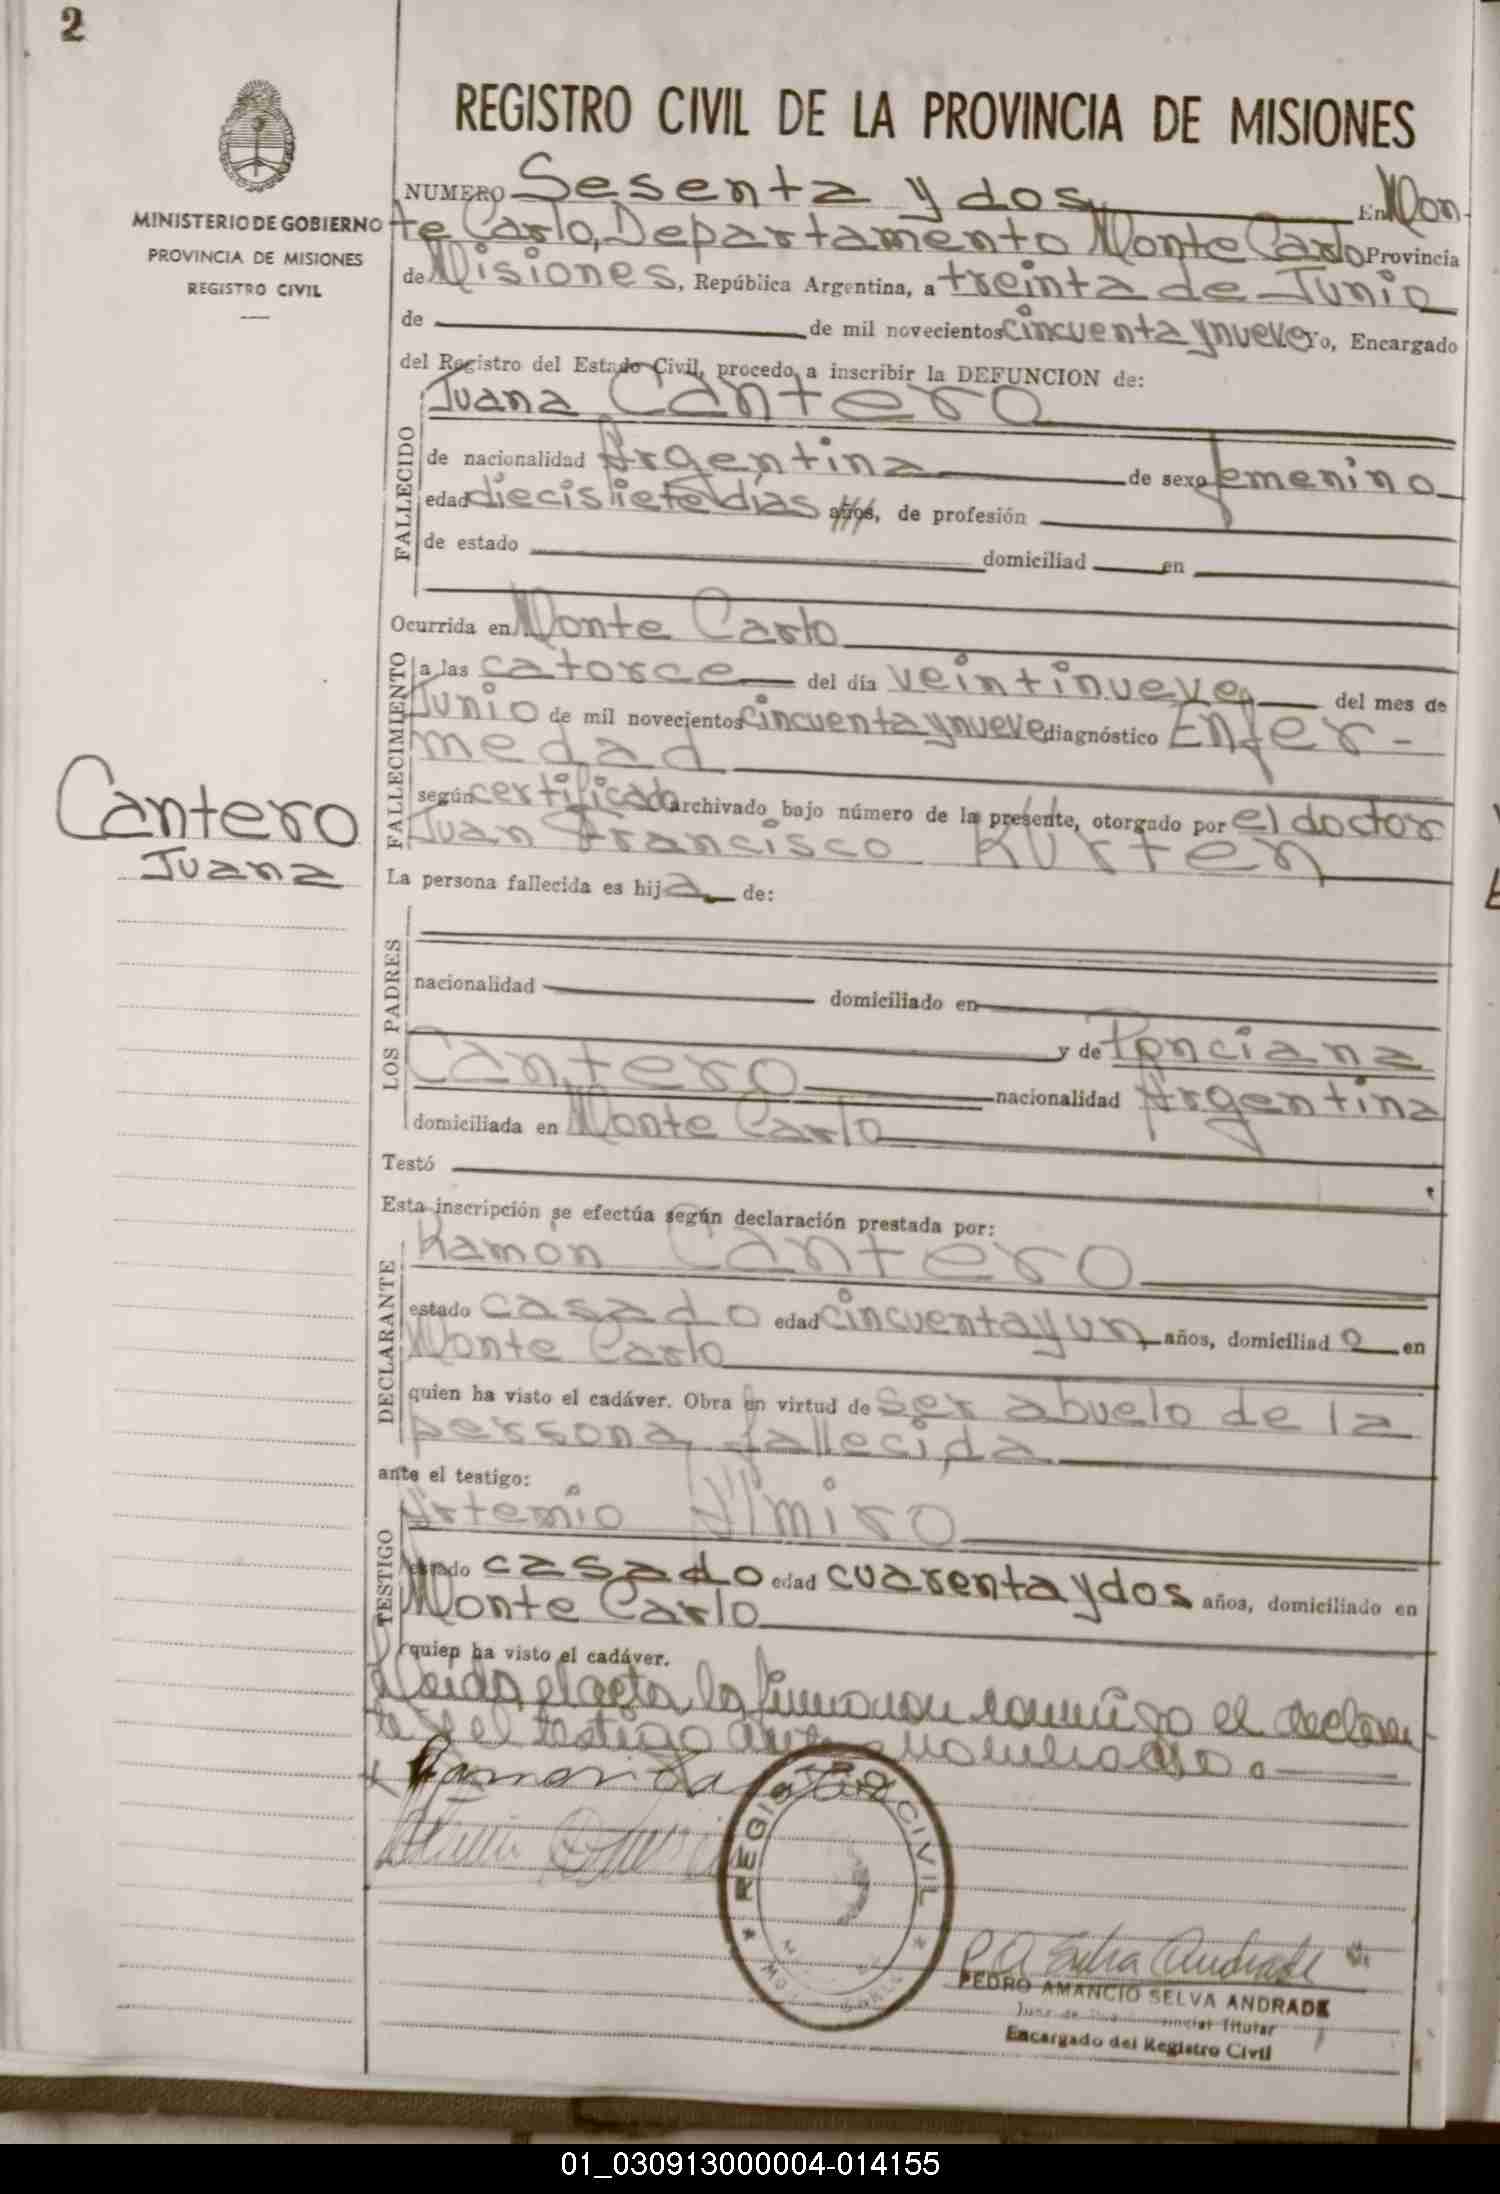 2
REGISTRO CIVIL DE LA PROVINCIA DE MISIONES
MINISTERIO DE GOBIERNO
PROVINCIA DE MISIONES
REGISTRO CIVIL
NUMERO Sesenta y dos En Mon-
te Carlo, Departamento Monte Carlo Provincia
de Misiones, República Argentina, a treinta de Junio
de de mil novecientos cincuenta y nueve Yo, Encargado
del Registro del Estado Civil, procedo a inscribir la DEFUNCION de:
FALLECIDO
Juana Cantero
de nacionalidad Argentina de sexo femenino
edad diecisiete días años, de profesión
de estado domiciliad en
Ocurrida en Monte Carlo
FALLECIMIENTO
a las catorce del día veintinueve del mes de
Junio de mil novecientos cincuenta y nueve diagnóstico Enfer-
medad
según certificado archivado bajo número de la presente, otorgado por el doctor
Juan Francisco Kurten
Cantero
Juana
La persona fallecida es hija de:
LOS PADRES
nacionalidad domiciliado en
y de Ponciana
Cantero nacionalidad Argentina
domiciliada en Monte Carlo
Testó
Esta inscripción se efectúa según declaración prestada por:
DECLARANTE
Ramón Cantero
estado casado edad cincuenta y un años, domiciliado en
Monte Carlo
quien ha visto el cadáver. Obra en virtud de ser abuelo de la
persona fallecida
ante el testigo:
TESTIGO
Artemio Almiro
estado casado edad cuarenta y dos años, domiciliado en
Monte Carlo
quien ha visto el cadáver.
Leida el acta la firmaron conmigo el declaran-
te y el testigo antes nombrado
REGISTRO CIVIL
P A Selva Andrade
PEDRO AMANCIO SELVA ANDRADE
Juez de Titular
Encargado del Registro Civil
01_030913000004-014155